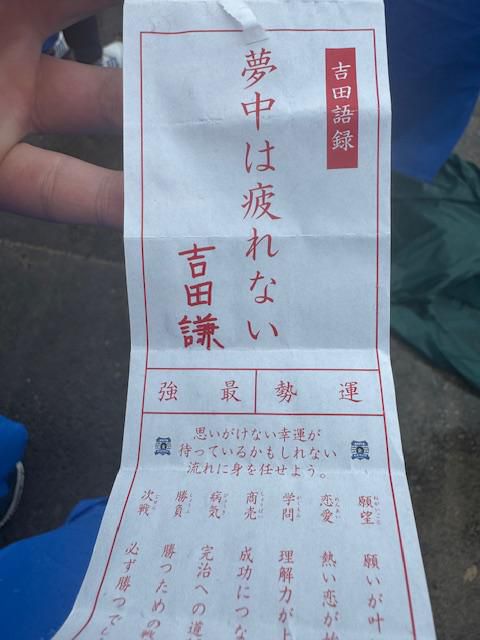 吉田語録
夢中は疲れない
吉田謙
運勢
最強
思いがけない幸運が
待っているかもしれない
流れに身を任せよう。
願望 願いが叶
恋愛 熱い恋が始
学問 理解力が上
商売 成功につな
病気 完治への道
勝負 勝つための戦
次戦 必ず勝つでし